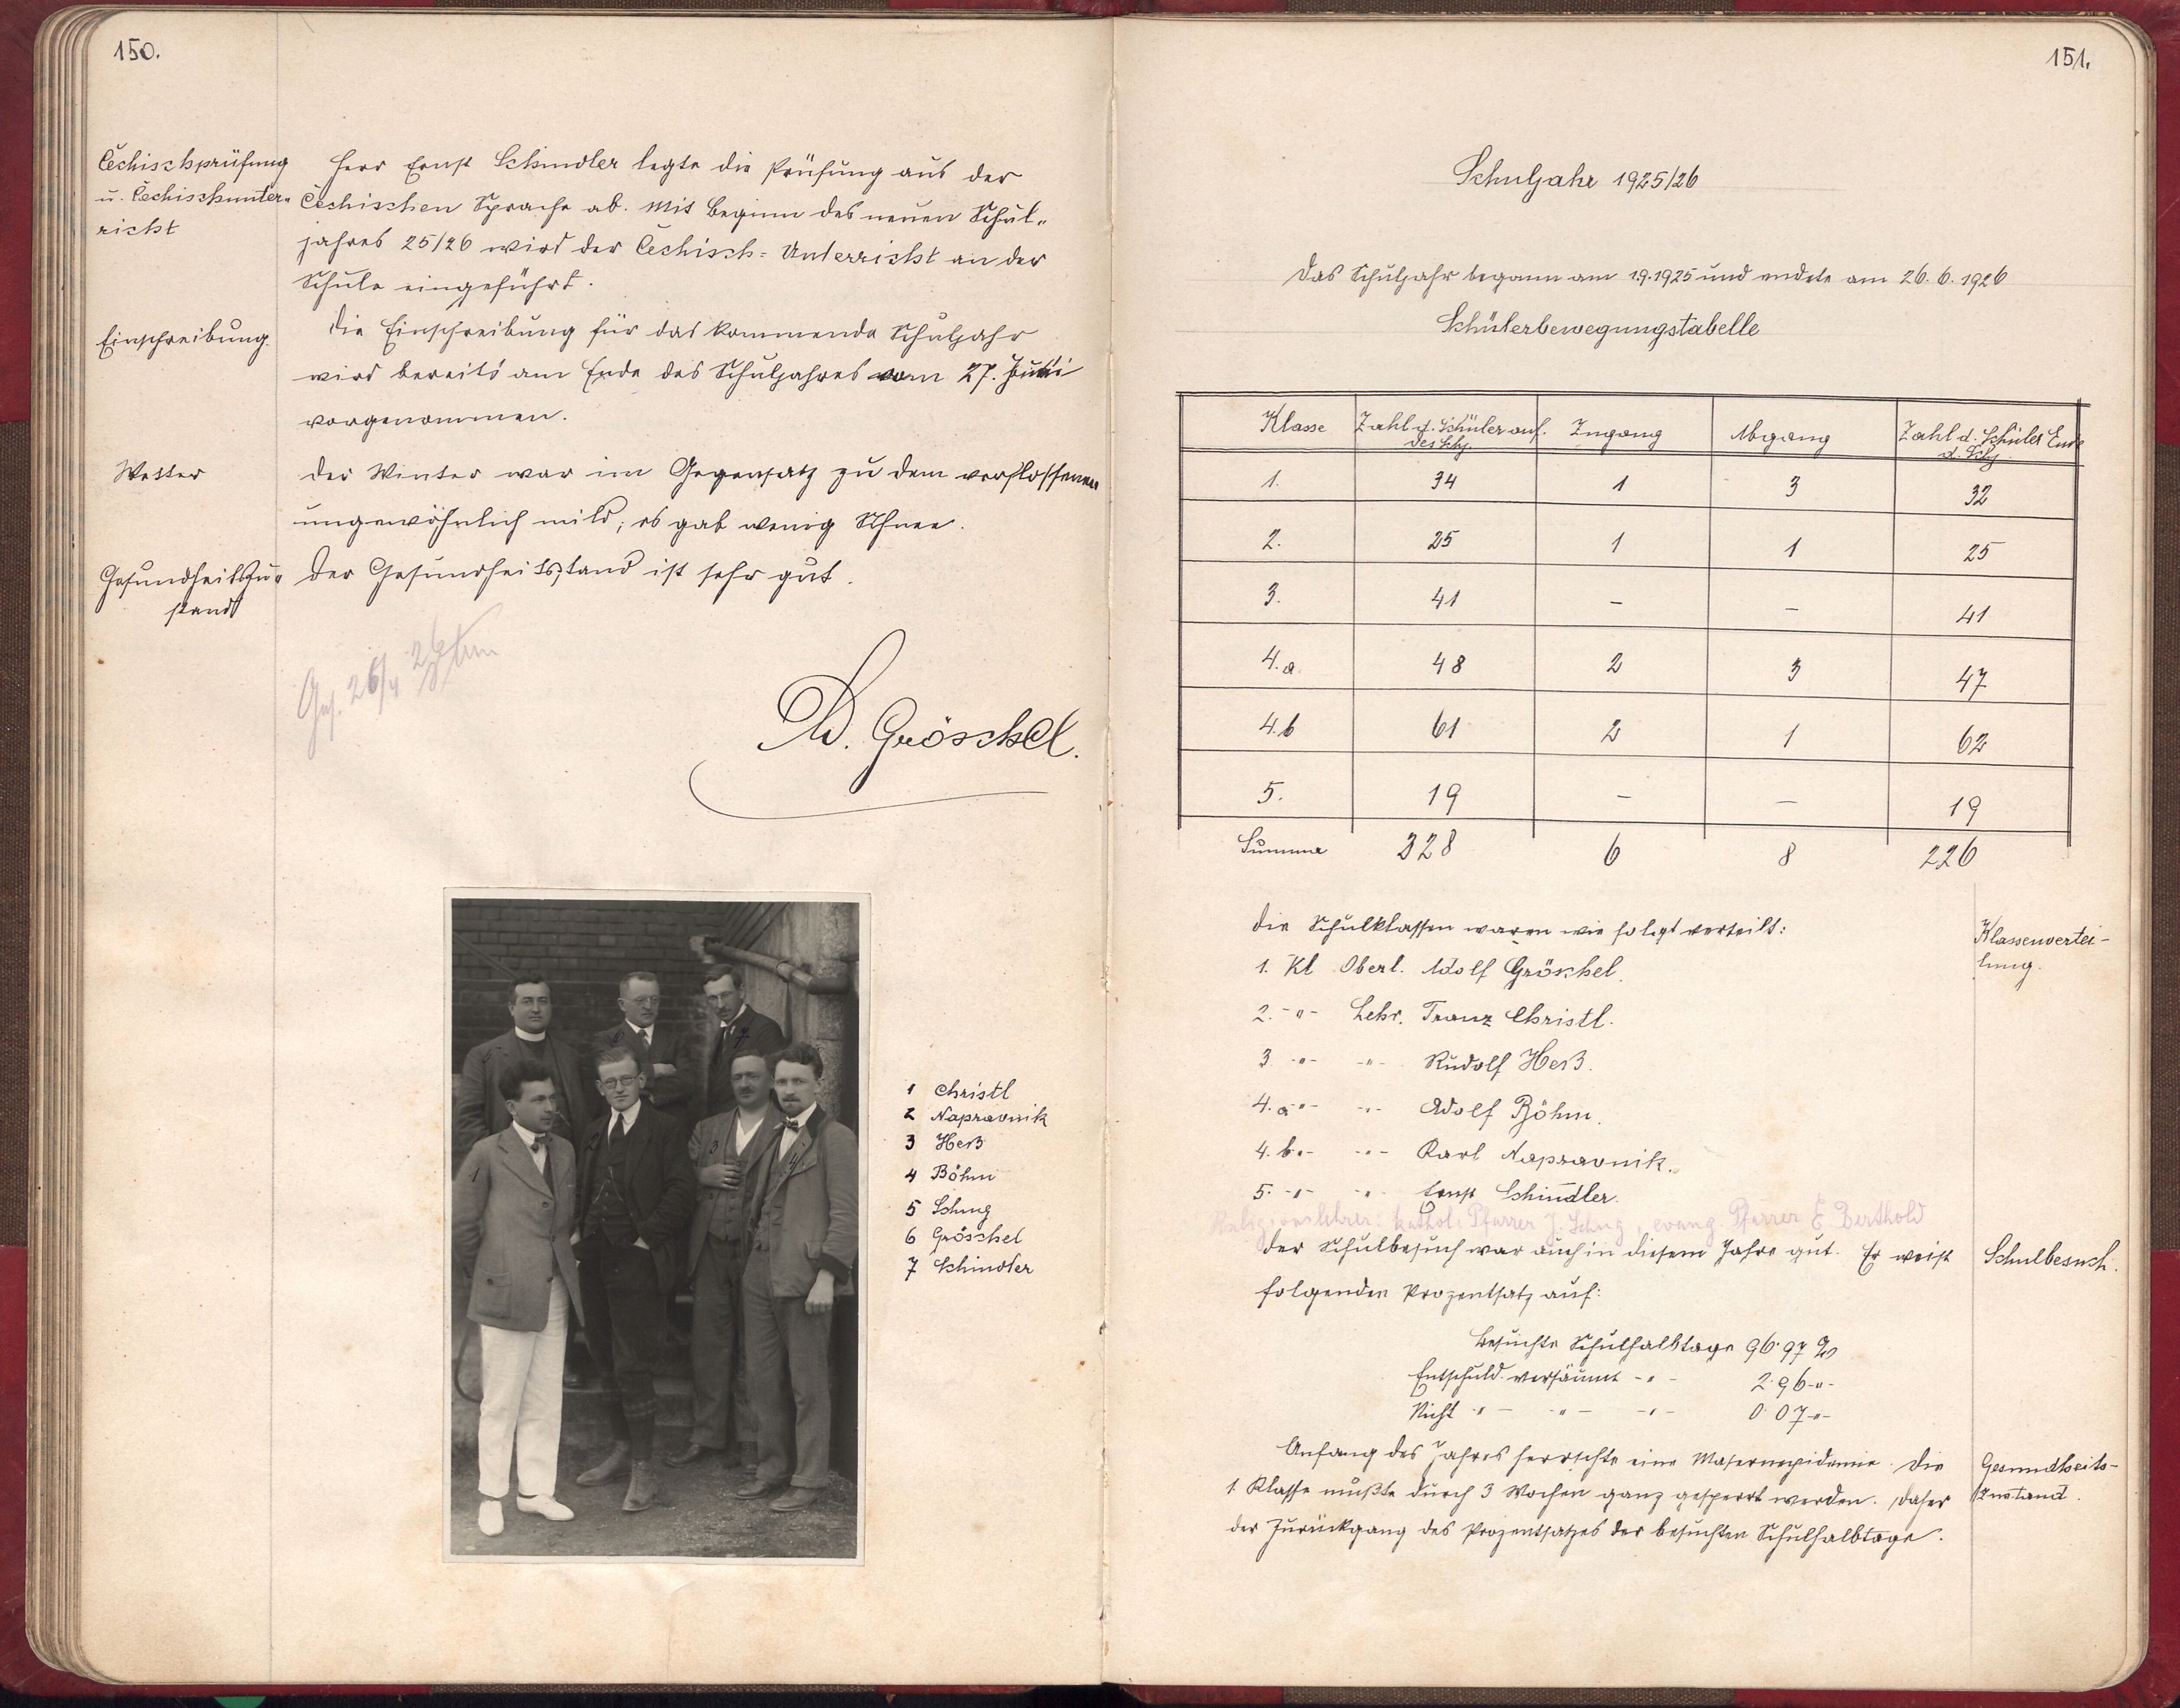 150.
Čechischprüfung
u. Čechischunter-
richt
Herr Ernst Schindler legte die Prüfung aus der
Čechischen Sprache ab. Mit Beginn des neuen Schul-
jahres 25/26 wird der Čechisch-Unterricht an der
Schule eingeführt.
Einschreibung.
Die Einschreibung für das kommende Schuljahr
wird bereits am Ende des Schuljahres vom 27. Juni
vorgenommen.
Wetter
Der Winter war im Gegensatz zu dem verflossenen
ungewöhnlich mild; es gab wenig Schnee.
Gesundheitszu-
stand
Der Gesundheitsstand ist sehr gut.
Ges. 26/4 26
Ad. Gröschel.
1 Christl
2 Napravnik
3 Heß
4 Böhm
5 Schug
6 Gröschel
7 Schindler
151.
Schuljahr 1925/26
Das Schuljahr begann am 1.9.1925 und endete am 26.6.1926
Schülerbewegungstabelle
Klasse Zahl d. Schüler anf. des Schj. Zugang Abgang Zahl d. Schüler Ende d. Schj.
1. 34 1 3 32
2. 25 1 1 25
3. 41 – – 41
4.a 48 2 3 47
4.b 61 2 1 62
5. 19 – – 19
Summe 328 6 8 226
Die Schulklassen waren wie folgt verteilt:
Klassenvertei-
lung.
1. Kl Oberl. Adolf Gröschel.
2. -"- Lehr. Franz Christl.
3 -"- -"- Rudolf Heß.
4. a -"- -"- Adolf Böhm.
4. b -"- -"- Karl Napravnik.
5. -"- -"- Ernst Schindler.
Religionslehrer: kathol: Pfarrer J. Schug, evang. Pfarrer E. Berthold
Der Schulbesuch war auch in diesem Jahre gut. Er weist
Schulbesuch.
folgenden Prozentsatz auf:
Besuchte Schulhalbtage 96·97 %
Entschuld. versäumt -"- 2·96 -"-
Nicht -"- -"- -"- 0·07 -"-
Anfang des Jahres herrschte eine Masernepidemie. Die
Gesundheits-
zustand.
1. Klasse mußte durch 3 Wochen ganz gesperrt werden. Daher
der Zurückgang des Prozentsatzes der besuchten Schulhalbtage.